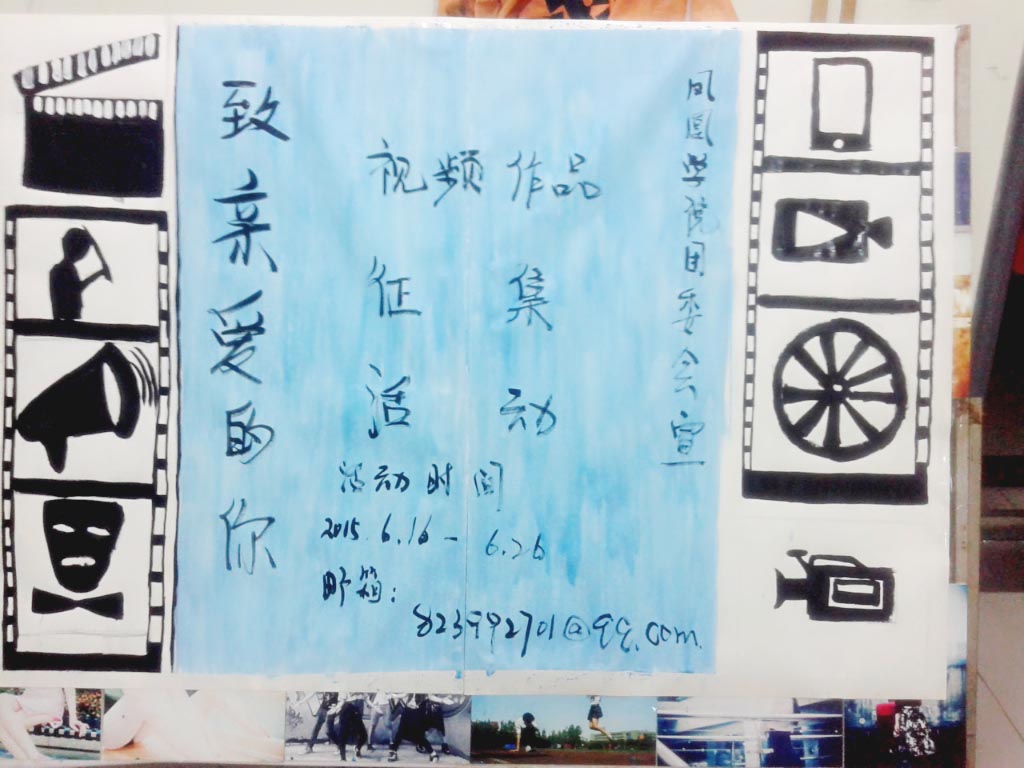 致亲爱的你
视频作品
征集
活动
活动时间
2015.6.16-6.26
邮箱:
823992701@qq.com.
凤凰学院团委会宣